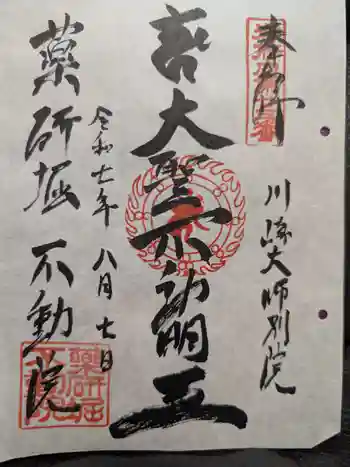 奉拝
川崎大師別院
吉大聖不動明王
令和七年八月七日
薬研堀不動院
薬研堀